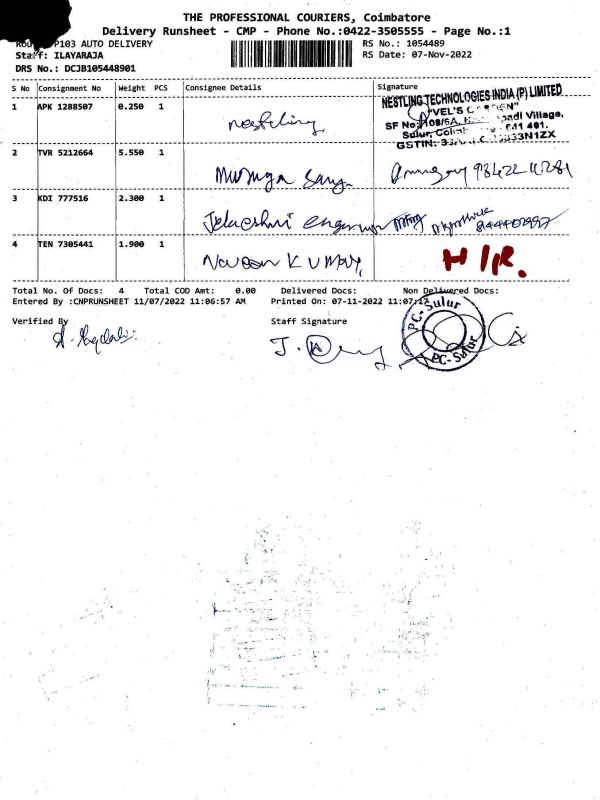 THE PROFESSIONAL COURIERS, Coimbatore
Delivery Runsheet - CMP - Phone No.:0422-3505555 - Page No.:1
P103 AUTO DELIVERY
RS No.: 1054489
Staff: ILAYARAJA
RS Date: 07-Nov-2022
DRS No.: DCJB105448901
S No Consignment No Weight PCS Consignee Details Signature
1 APK 1288507 0.250 1 nestling
NESTLING TECHNOLOGIES INDIA (P) LIMITED
"VEL'S
SF No. Village,
Sulur, 641 401.
GSTIN:
2 TVR 5212664 5.550 1 Muruga
3 KDI 777516 2.300 1
4 TEN 7305441 1.900 1 Naveen Kumar,
Total No. Of Docs: 4 Total COD Amt: 0.00 Delivered Docs: Non Delivered Docs:
Entered By :CNPRUNSHEET 11/07/2022 11:06:57 AM Printed On: 07-11-2022
Verified By Staff Signature
PC-Sulur
PC-Sulur